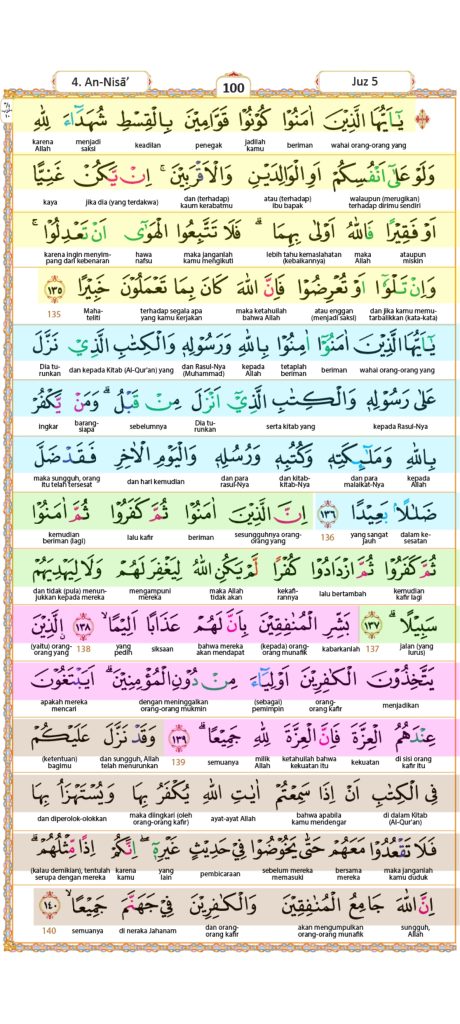 4. An-Nisā’
100
Juz 5
يٰٓاَيُّهَا الَّذِيْنَ اٰمَنُوْا كُوْنُوْا قَوَّامِيْنَ بِالْقِسْطِ شُهَدَاۤءَ لِلّٰهِ
wahai orang-orang yang beriman jadilah kamu penegak keadilan menjadi saksi karena Allah
وَلَوْ عَلٰٓى اَنْفُسِكُمْ اَوِ الْوَالِدَيْنِ وَالْاَقْرَبِيْنَ ۚ اِنْ يَّكُنْ غَنِيًّا
walaupun (merugikan) terhadap dirimu sendiri atau (terhadap) ibu bapak dan (terhadap) kaum kerabatmu jika dia (yang terdakwa) kaya
اَوْ فَقِيْرًا فَاللّٰهُ اَوْلٰى بِهِمَاۗ فَلَا تَتَّبِعُوا الْهَوٰٓى اَنْ تَعْدِلُوْا ۚ
ataupun miskin maka Allah lebih tahu kemaslahatan (kebaikannya) maka janganlah kamu mengikuti hawa nafsu karena ingin menyimpang dari kebenaran
وَاِنْ تَلْوٗٓا اَوْ تُعْرِضُوْا فَاِنَّ اللّٰهَ كَانَ بِمَا تَعْمَلُوْنَ خَبِيْرًا ١٣٥
dan jika kamu memutarbalikkan (kata-kata) atau enggan (menjadi saksi) maka ketahuilah bahwa Allah terhadap segala apa yang kamu kerjakan Mahateliti 135
يٰٓاَيُّهَا الَّذِيْنَ اٰمَنُوْٓا اٰمِنُوْا بِاللّٰهِ وَرَسُوْلِهٖ وَالْكِتٰبِ الَّذِيْ نَزَّلَ
wahai orang-orang yang beriman tetaplah beriman kepada Allah dan Rasul-Nya (Muhammad) dan kepada Kitab (Al-Qur'an) yang Dia turunkan
عَلٰى رَسُوْلِهٖ وَالْكِتٰبِ الَّذِيْٓ اَنْزَلَ مِنْ قَبْلُ ۗ وَمَنْ يَّكْفُرْ
kepada Rasul-Nya serta kitab yang Dia turunkan sebelumnya barangsiapa ingkar
بِاللّٰهِ وَمَلٰۤىِٕكَتِهٖ وَكُتُبِهٖ وَرُسُلِهٖ وَالْيَوْمِ الْاٰخِرِ فَقَدْ ضَلَّ
kepada Allah dan para malaikat-Nya dan kitab-kitab-Nya dan para rasul-Nya dan hari kemudian maka sungguh, orang itu telah tersesat
ضَلٰلًا ۢ بَعِيْدًا ١٣٦ اِنَّ الَّذِيْنَ اٰمَنُوْا ثُمَّ كَفَرُوْا ثُمَّ اٰمَنُوْا
dalam kesesatan yang sangat jauh 136 sesungguhnya orang-orang yang beriman lalu kafir kemudian beriman (lagi)
ثُمَّ كَفَرُوْا ثُمَّ ازْدَادُوْا كُفْرًا لَّمْ يَكُنِ اللّٰهُ لِيَغْفِرَ لَهُمْ وَلَا لِيَهْدِيَهُمْ
kemudian kafir lagi lalu bertambah kekafirannya maka Allah tidak akan mengampuni mereka dan tidak (pula) menunjukkan kepada mereka
سَبِيْلًاۗ ١٣٧ بَشِّرِ الْمُنٰفِقِيْنَ بِاَنَّ لَهُمْ عَذَابًا اَلِيْمًاۙ ١٣٨ ۨالَّذِيْنَ
jalan (yang lurus) 137 kabarkanlah (kepada) orang-orang munafik bahwa mereka akan mendapat siksaan yang pedih 138 (yaitu) orang-orang yang
يَتَّخِذُوْنَ الْكٰفِرِيْنَ اَوْلِيَاۤءَ مِنْ دُوْنِ الْمُؤْمِنِيْنَ ۗ اَيَبْتَغُوْنَ
menjadikan orang-orang kafir (sebagai) pemimpin dengan meninggalkan orang-orang mukmin apakah mereka mencari
عِنْدَهُمُ الْعِزَّةَ فَاِنَّ الْعِزَّةَ لِلّٰهِ جَمِيْعًاۗ ١٣٩ وَقَدْ نَزَّلَ عَلَيْكُمْ
di sisi orang kafir itu kekuatan ketahuilah bahwa kekuatan itu milik Allah semuanya 139 dan sungguh, Allah telah menurunkan (ketentuan) bagimu
فِى الْكِتٰبِ اَنْ اِذَا سَمِعْتُمْ اٰيٰتِ اللّٰهِ يُكْفَرُ بِهَا وَيُسْتَهْزَاُ بِهَا
di dalam Kitab (Al-Qur'an) bahwa apabila kamu mendengar ayat-ayat Allah diingkari (oleh orang-orang kafir) dan diperolok-olokkan
فَلَا تَقْعُدُوْا مَعَهُمْ حَتّٰى يَخُوْضُوْا فِيْ حَدِيْثٍ غَيْرِهٖٓ ۖ اِنَّكُمْ اِذًا مِّثْلُهُمْ ۗ
maka janganlah kamu duduk bersama mereka sebelum mereka memasuki pembicaraan yang lain karena kamu (kalau demikian), tentulah serupa dengan mereka
اِنَّ اللّٰهَ جَامِعُ الْمُنٰفِقِيْنَ وَالْكٰفِرِيْنَ فِيْ جَهَنَّمَ جَمِيْعًاۙ ١٤٠
sungguh, Allah akan mengumpulkan orang-orang munafik dan orang-orang kafir di neraka Jahanam semuanya 140